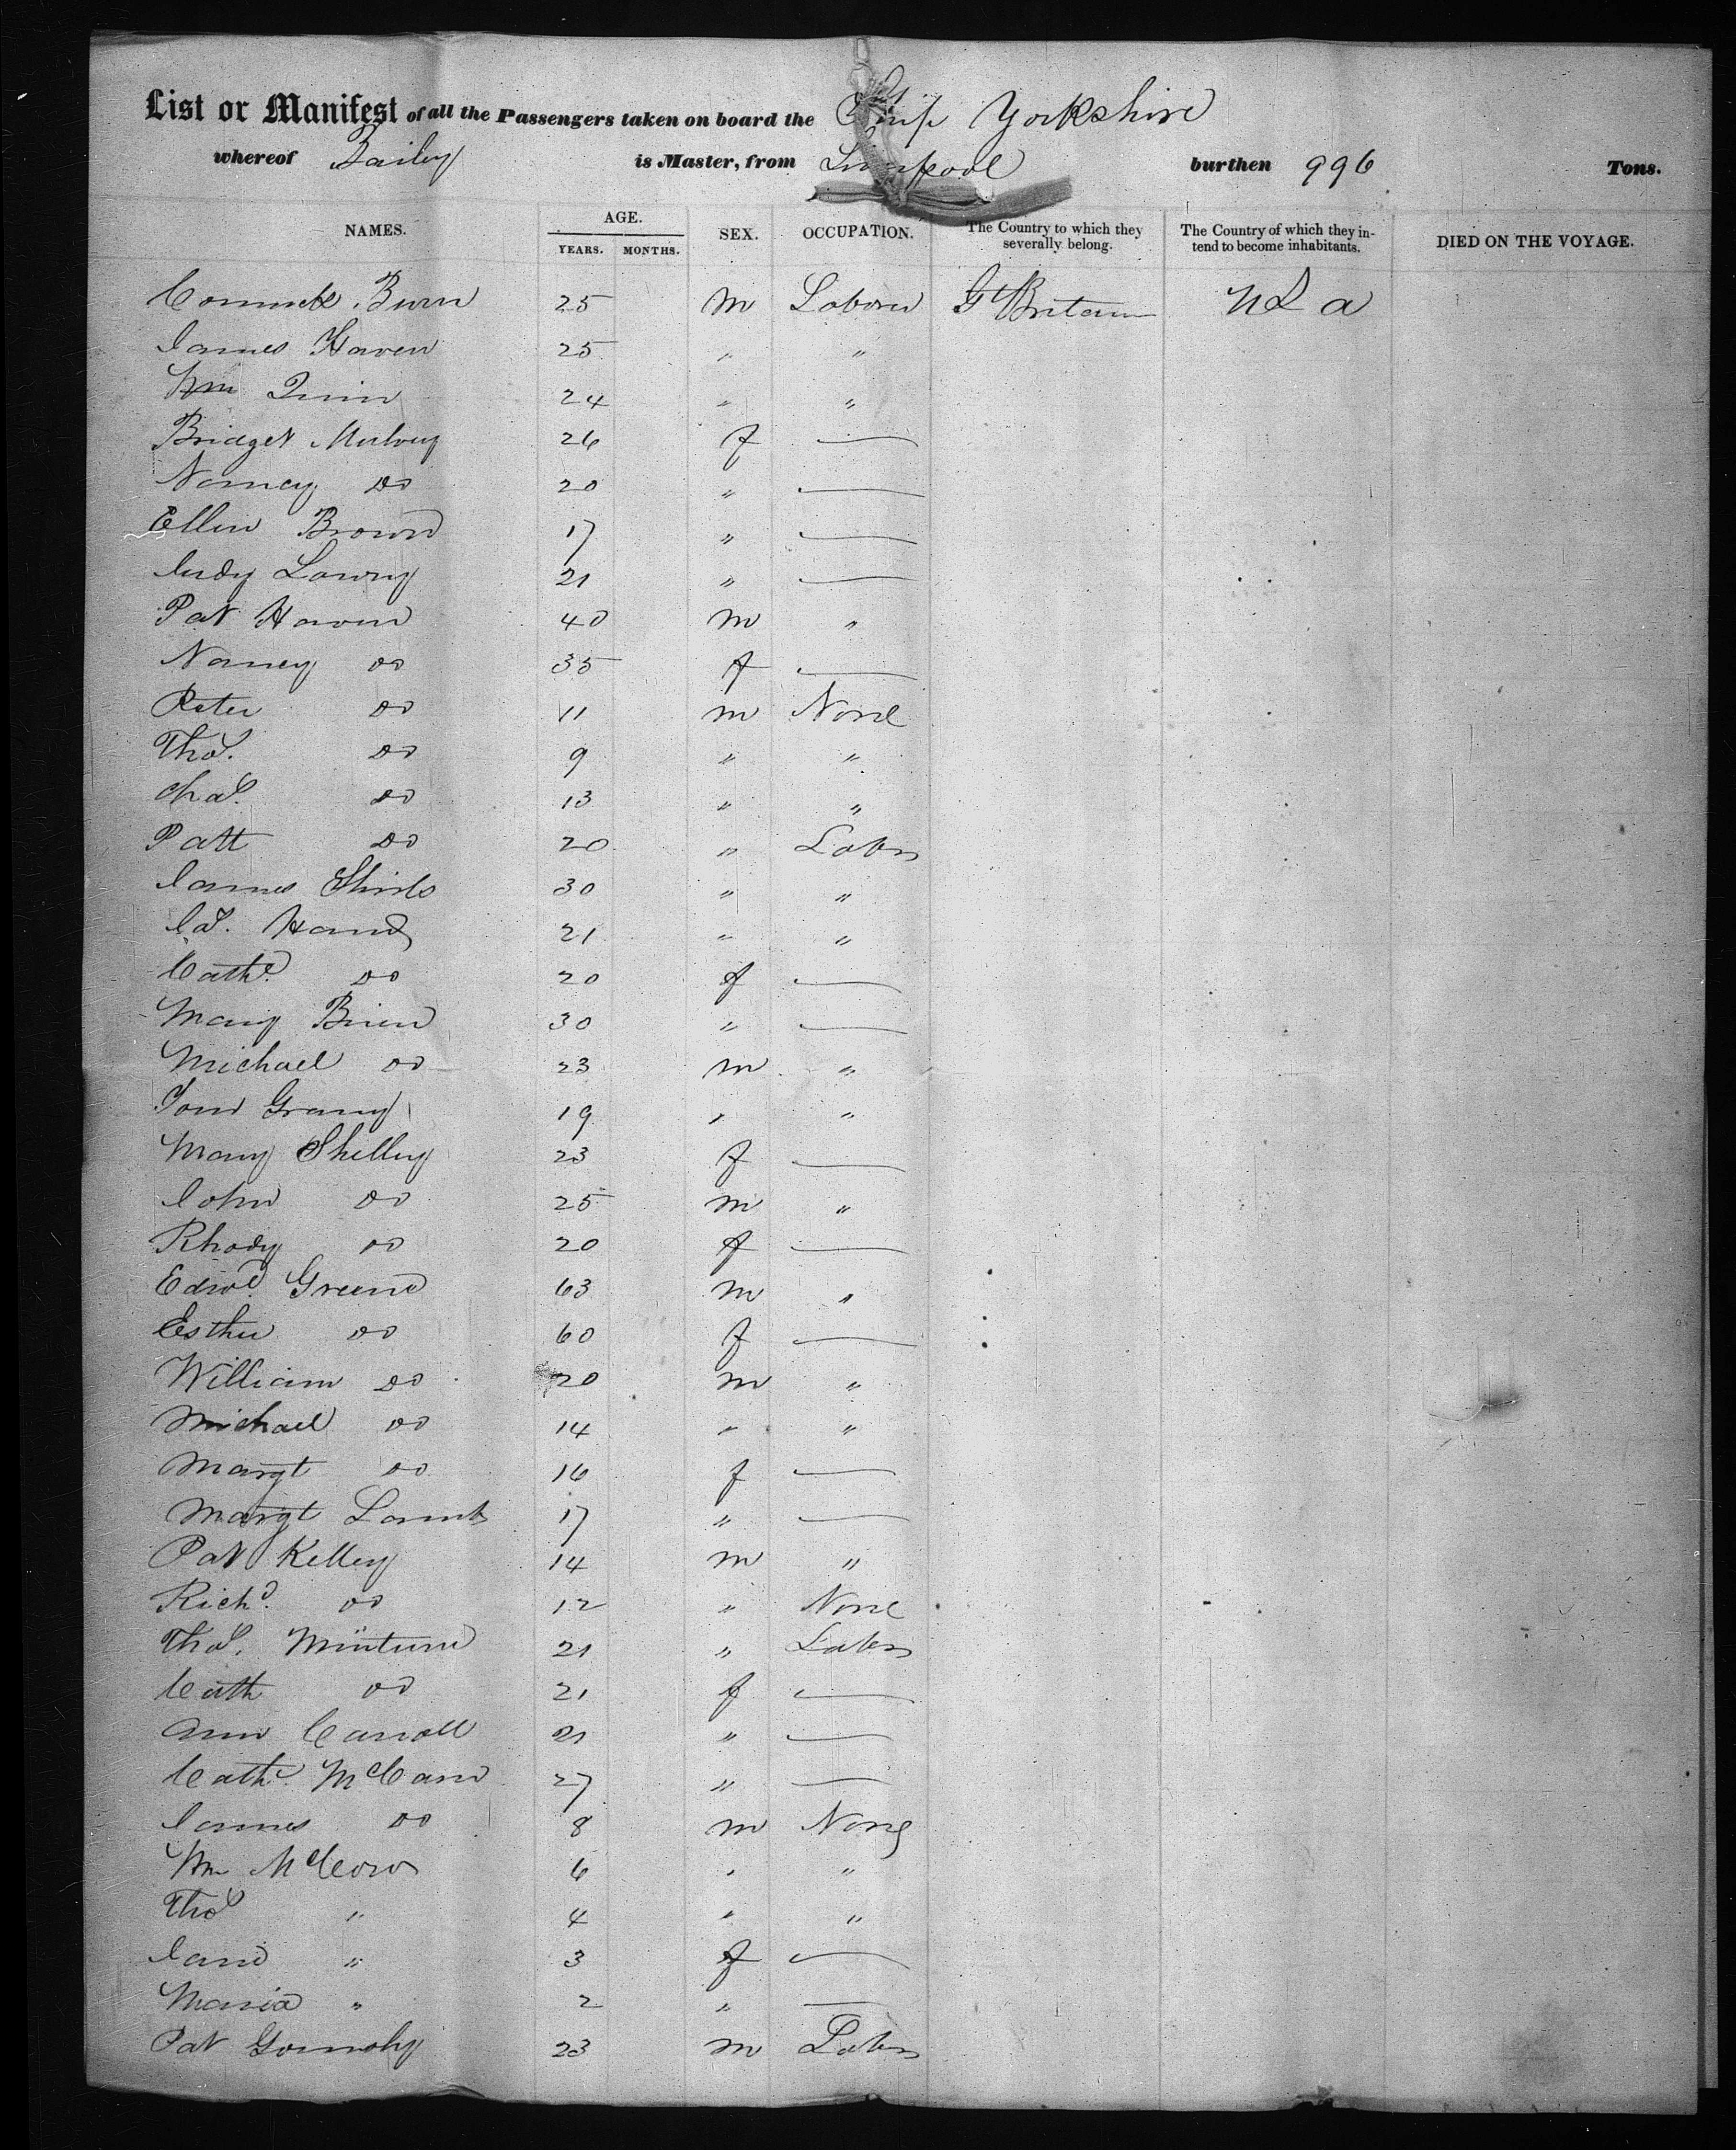 List or Manifest of all the Passengers taken on board the Ship Yorkshire
whereof Bailey is Master, from Liverpool burthen 996 Tons.
NAMES. AGE. YEARS. MONTHS. SEX. OCCUPATION. The Country to which they severally belong. The Country of which they intend to become inhabitants. DIED ON THE VOYAGE.
Burn 25 m Laborer Gt Britain U S a
James Haven 25 " "
Wm Quinn 24 " "
Bridget Mulvey 26 f —
Nancy Do 20 " —
Ellen Brown 17 " —
Judy Lowry 21 " —
Pat Haven 40 m "
Nancy Do 35 f —
Peter Do 11 m None
Thos. Do 9 " "
Chas. Do 13 " "
Patt Do 20 " Labr
James Shirls 30 " "
Jas. Hand 21 " "
Cathe. Do 20 f —
Mary Brien 30 " —
Michael Do 23 m "
Tom 19 " "
Mary Shelley 23 f —
John Do 25 m "
Rhody Do 20 f —
Edwd. Greene 63 m "
Esther Do 60 f —
William Do 20 m "
Michael Do 14 " "
Margt Do 16 f —
Margt Lamb 17 " —
Pat Kelley 14 m "
Richd. Do 12 " None
Thos. Minturn 21 " Labr
Cath Do 21 f —
Ann Carroll 21 " —
Cathe. McCann 27 " —
James Do 8 m None
Wm 6 " "
Thos " 4 " "
Jane " 3 f —
Maria " 2 " —
Pat Gormoly 23 m Labr